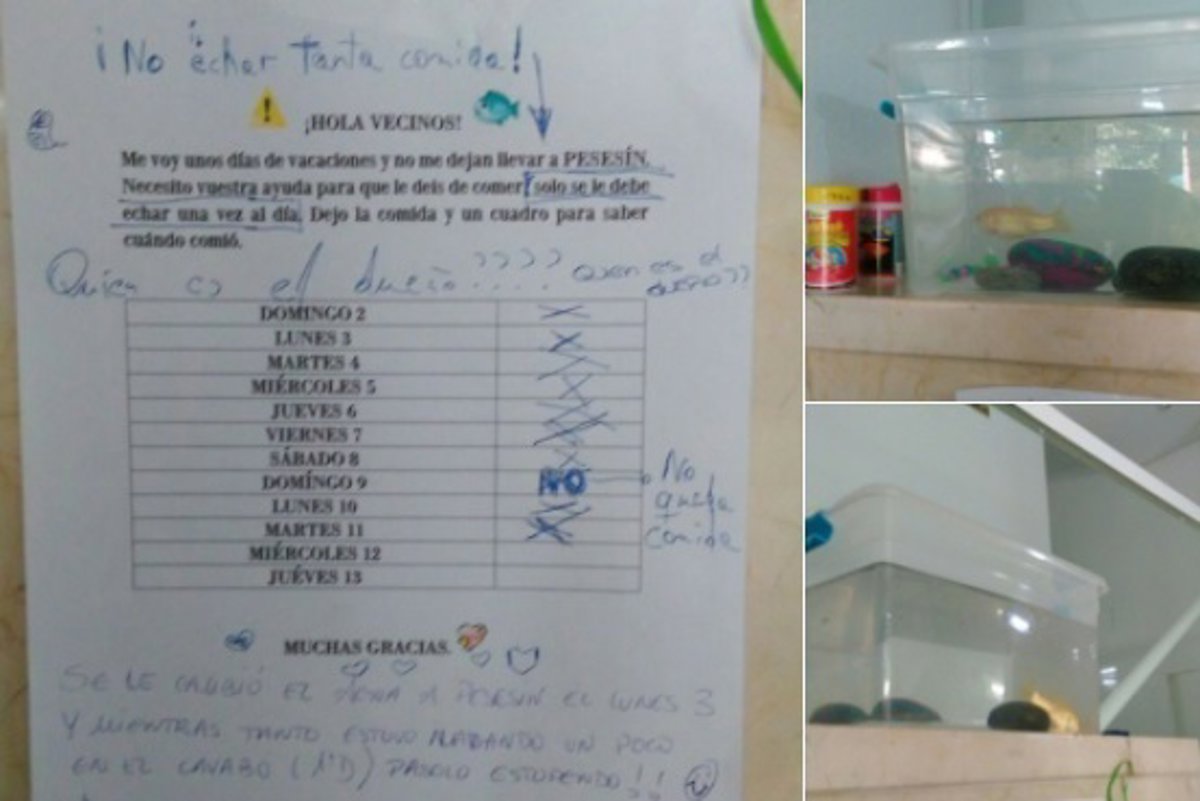 ¡No echar tanta comida!
¡HOLA VECINOS!
Me voy unos días de vacaciones y no me dejan llevar a PESESÍN.
Necesito vuestra ayuda para que le deis de comer, solo se le debe
echar una vez al día. Dejo la comida y un cuadro para saber
cuándo comió.
Quien es el dueño????
Quien es el dueño??
DOMINGO 2
LUNES 3
MARTES 4
MIÉRCOLES 5
JUEVES 6
VIERNES 7
SÁBADO 8
DOMÍNGO 9 NO
No
queda
comida
LUNES 10
MARTES 11
MIÉRCOLES 12
JUÉVES 13
MUCHAS GRACIAS.
SE LE CAMBIÓ EL AGUA A PESESIN EL LUNES 3
Y MIENTRAS TANTO ESTUVO NADANDO UN POCO
EN EL LAVABO (1ºD) PASOLO ESTUPENDO!!